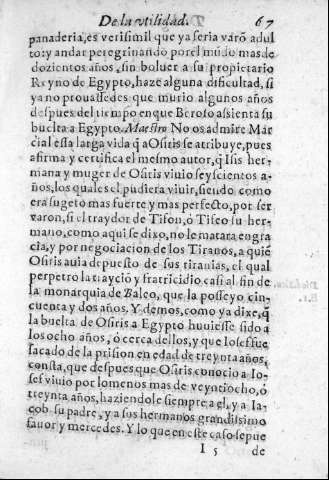 De la vtilidad. 67
panaderia, es verisimil que ya seria varõ adul
to: y andar peregrinando por el mũdo mas de
dozientos años, sin boluer a su propietario
Reyno de Egypto, haze alguna dificultad, si
ya no prouassedes que murio algunos años
despues del tiempo en que Beroso assienta su
buelta a Egypto. Maestro No os admire Mar
cial esta larga vida q̃ a Osiris se atribuye, pues
afirma y certifica el mismo autor, q̃ Isis her-
mana y muger de Osiris viuio seyscientos a-
ños, los quales el pudiera viuir, siendo como
era sugeto mas fuerte y mas perfecto, por ser
varon, si el traydor de Tifon, ó Tifeo su her-
mano, como aqui se dixo, no le matara en gra
cia, y por negociacion de los Tiranos, a quiē
Osiris auia depuesto de sus tiranias, el qual
perpetro la trayciõ y fratricidio casi al fin de
la monarquia de Baleo, que la posseyo cin-
cuenta y dos años. Y demos, como ya dixe, q̃
la buelta de Osiris a Egypto huuiesse sido a
los ocho años, ó cerca dellos, y que Iosef fue
sacado de la prision en edad de treynta años,
consta, que despues que Osiris conocio a Io-
sef viuio por lo menos mas de veyntiocho, ó
treynta años, haziendole siempre a el, y a Ia-
cob su padre, y a sus hermanos grandissimo
fauor y mercedes. Y lo que en este caso se pue
I 5 de